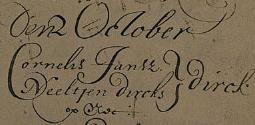 Den 2 October
Cornelis Jansz. } dirck.
Neeltjen dircks